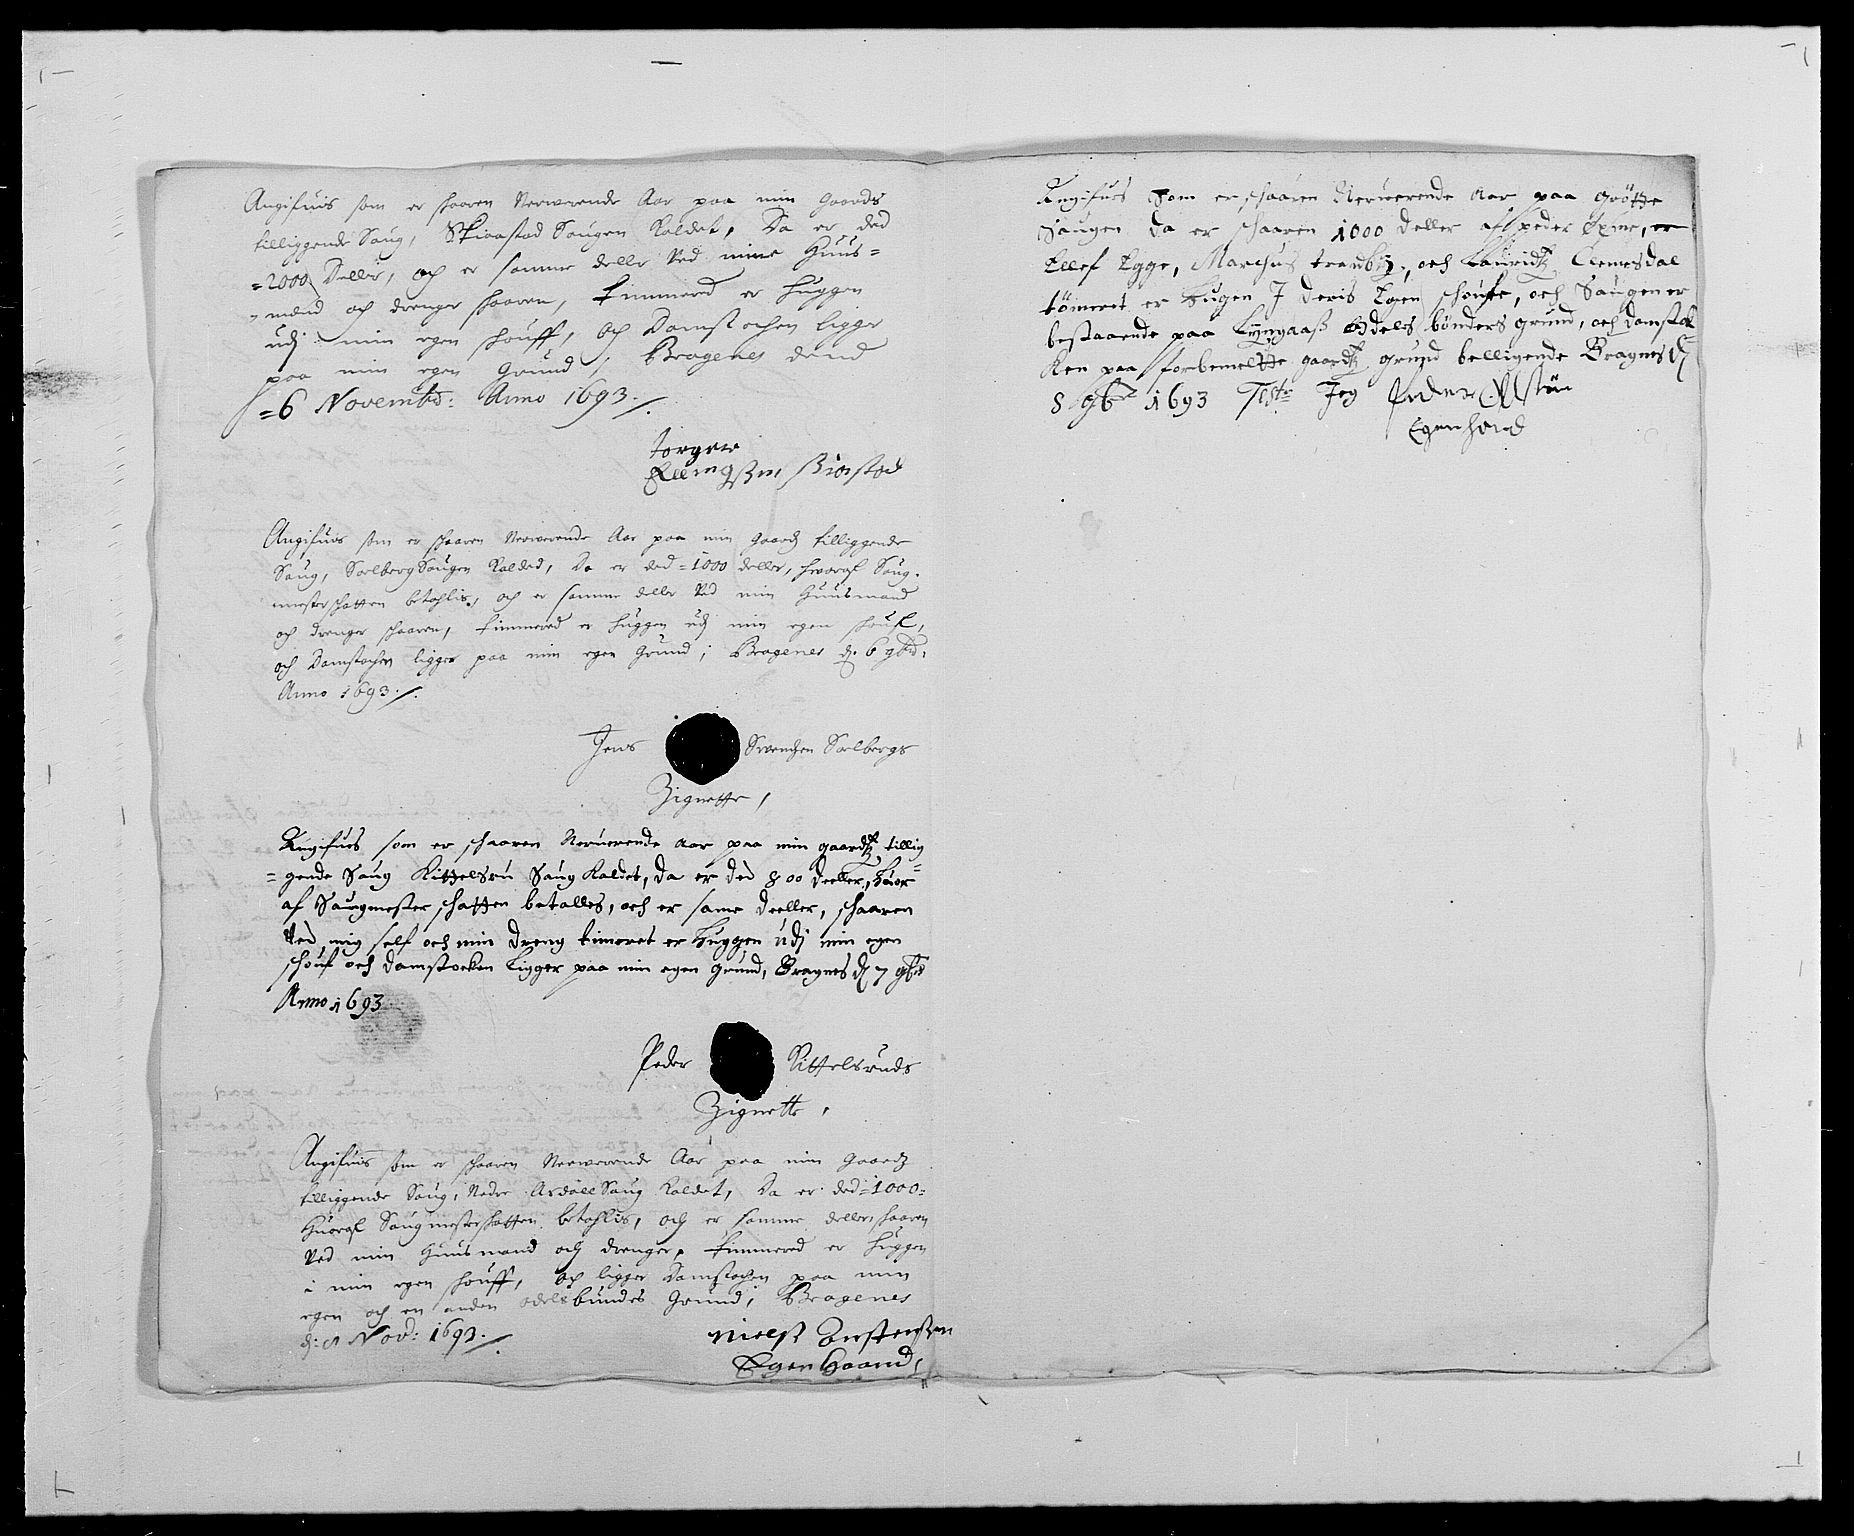 Angifuis som er skaaren Nerwerende Aar paa min Gaards
tilliggende Saug, Skioastad Saugen Kaldet, Da er ded
=2000 Deller, och er samme delle Ved mine Huus=
=mænd och drenger skaaren, timmered er huggen
udj min egen skouff, och Damstochen ligger
paa min egen Grund, Bragenes dend
=6 Novembd: Anno 1693 ./.
torger
Ellingßen skiostad
Angifuis som er skaaren Nerwerende Aar paa min Gaards tilliggende
Saug, Solberg Saugen Kalded, Da er ded =1000 deller, hworaf Saug-
mester skatten betahlis, och er samme delle Ved min Huusmand
och drenger skaaren, timmered er huggen udj min egen skouf,
och Damstochen ligger paa min egen Grund; Bragenes d. 6 9bd:
Anno 1693 ./.
Jens Swendßen Solbergs
Zignette,
Angifues som er skaaren Neruerende aar paa min gaardtz tillig
=gende Saug Kittelsru Saug kaldet, da er ded 800 deeller, huor=
af Saugmester skatten betalles, och er same deeller, skaaren
Ved mig self och min dreng timeret er huggen udj min egen
skouf och damstocken ligger paa min egen grund, Bragnes d 7 9br
Anno 1693
Peder Kittelsruds
Zignette,
Angifuis som er skaaren Nerwerende Aar paa min Gaards
tilliggende Saug, Nedre Asdøll Saug kaldet, Da er ded =1000=
Huoraf Saugmesterskatten betahlis, och er samme deller skaaren
Ved min Huusmand och drenger, timmered er huggen
i min egen skouff, och ligger Damstochen paa min
egen och en anden odelsbundes Grund; Bragenes
d: 8 Nov: 1693 ./.
Nielß Torstenßen
Egen Haand,
Angifues som er skaaren Nerwerende aar paa Grötte
Saugen da er skaaren 1000 deller af peder
Ellef Egge, Marchus tranby, och Lauridtz Clemesdal
tömeret er hugen J deris Egen skouffe, och Saugen er
bestaaende paa Lyngaaß odels bønders grund, och damstok
ken paa forbemeltte gaardtz grund belligende Bragnes d
8 9br 1693 Jeg Peder
Egen haand